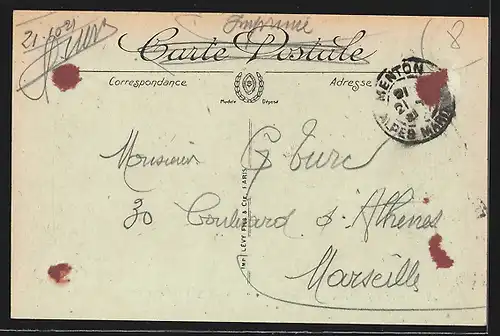 21-10-21
Imprimé
Carte Postale
Correspondance
Adresse
Modèle Déposé
MENTON
ALPES MARIT
Monsieur G Turc
30 Boulevard d'Athènes
Marseille
IMP. LÉVY FILS & Cie, PARIS